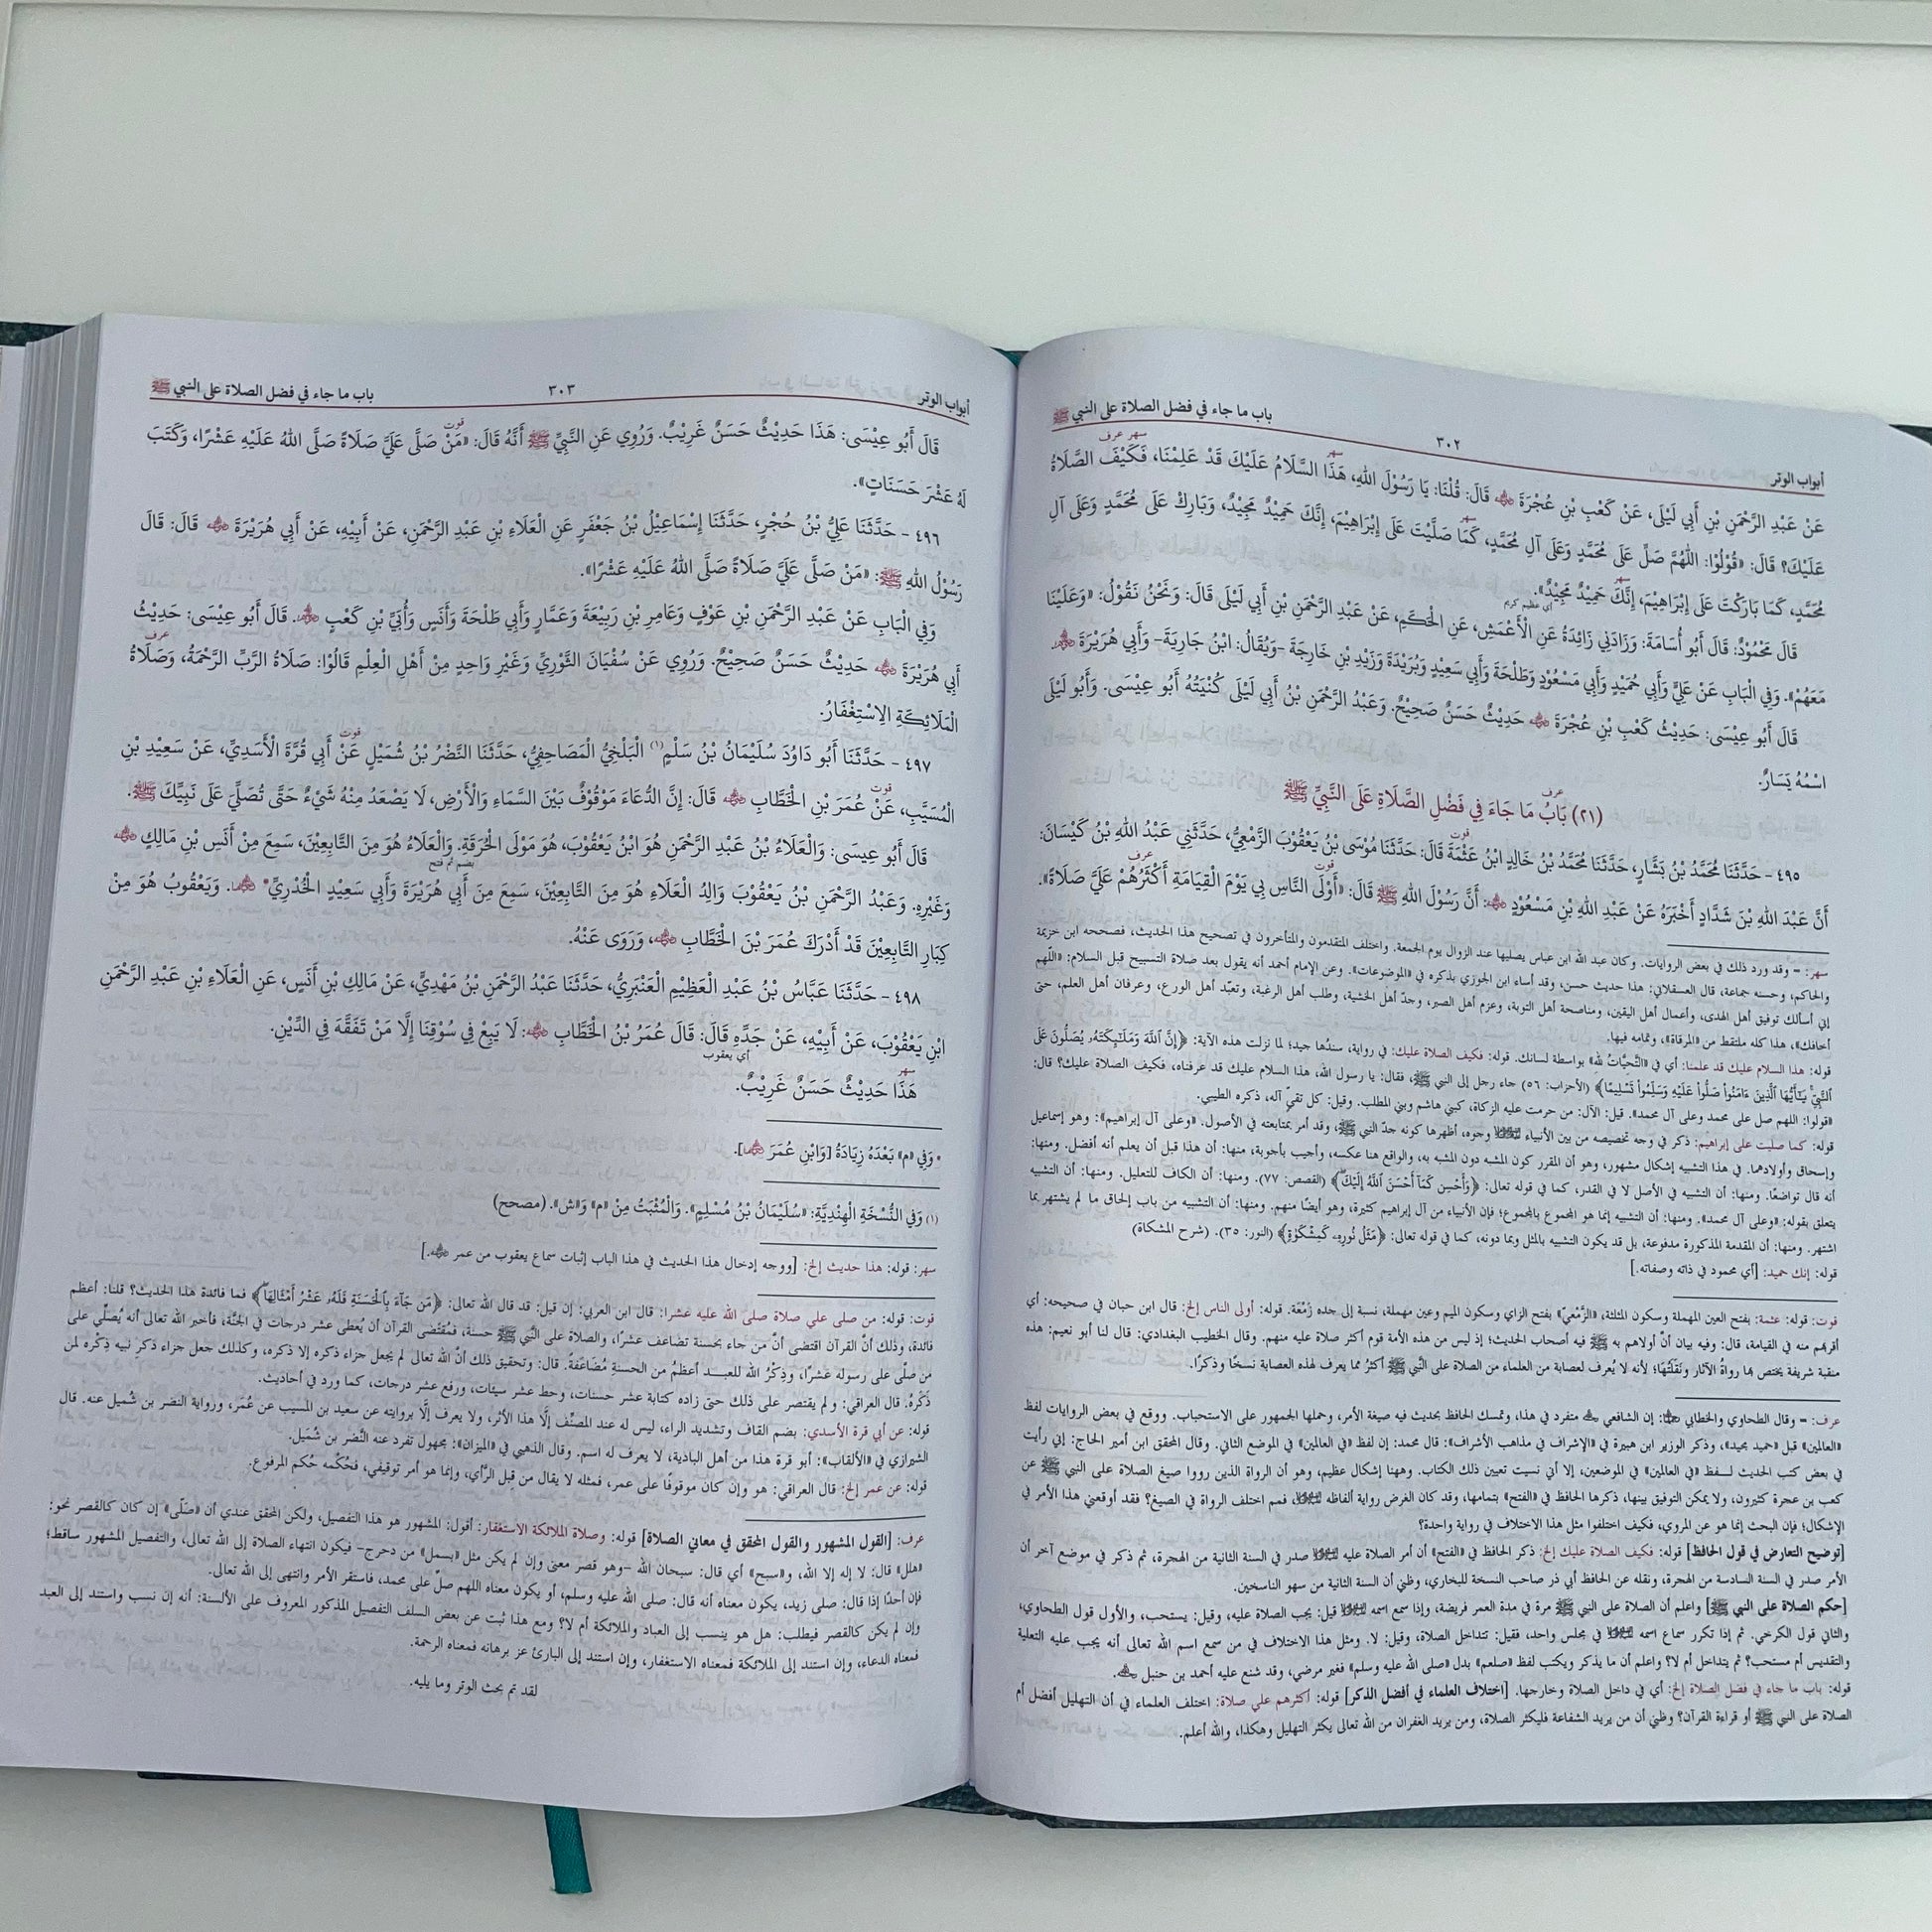 أبواب الوتر ٣٠٢ باب ما جاء في فضل الصلاة على النبي ﷺ
عَنْ عَبْدِ الرَّحْمَنِ بْنِ أَبِي لَيْلَى، عَنْ كَعْبِ بْنِ عُجْرَةَ ﵁ قَالَ: قُلْنَا: يَا رَسُوْلَ اللهِ، هَذَا السَّلَامُ عَلَيْكَ قَدْ عَلِمْنَا، فَكَيْفَ الصَّلَاةُ
عَلَيْكَ؟ قَالَ: «قُوْلُوْا: اللّٰهُمَّ صَلِّ عَلَى مُحَمَّدٍ وَعَلَى آلِ مُحَمَّدٍ، كَمَا صَلَّيْتَ عَلَى إِبْرَاهِيْمَ، إِنَّكَ حَمِيْدٌ مَجِيْدٌ، وَبَارِكْ عَلَى مُحَمَّدٍ وَعَلَى آلِ
مُحَمَّدٍ، كَمَا بَارَكْتَ عَلَى إِبْرَاهِيْمَ، إِنَّكَ حَمِيْدٌ مَجِيْدٌ».
قَالَ مَحْمُوْدٌ: قَالَ أَبُو أُسَامَةَ: وَزَادَنِي زَائِدَةُ عَنِ الْأَعْمَشِ، عَنِ الْحَكَمِ، عَنْ عَبْدِ الرَّحْمَنِ بْنِ أَبِي لَيْلَى قَالَ: وَنَحْنُ نَقُوْلُ: «وَعَلَيْنَا
مَعَهُمْ». وَفِي الْبَابِ عَنْ عَلِيٍّ وَأَبِي حُمَيْدٍ وَأَبِي مَسْعُوْدٍ وَطَلْحَةَ وَأَبِي سَعِيْدٍ وَبُرَيْدَةَ وَزَيْدِ بْنِ خَارِجَةَ -وَيُقَالُ: ابْنُ جَارِيَةَ- وَأَبِي هُرَيْرَةَ ﵃.
قَالَ أَبُو عِيْسَى: حَدِيْثُ كَعْبِ بْنِ عُجْرَةَ ﵁ حَدِيْثٌ حَسَنٌ صَحِيْحٌ. وَعَبْدُ الرَّحْمَنِ بْنُ أَبِي لَيْلَى كُنْيَتُهُ أَبُو عِيْسَى. وَأَبُو لَيْلَى
اسْمُهُ يَسَارٌ.
(٢١) بَابُ مَا جَاءَ فِي فَضْلِ الصَّلَاةِ عَلَى النَّبِيِّ ﷺ
٤٩٥ - حَدَّثَنَا مُحَمَّدُ بْنُ بَشَّارٍ، حَدَّثَنَا مُحَمَّدُ بْنُ خَالِدٍ ابْنُ عَثْمَةَ قَالَ: حَدَّثَنَا مُوْسَى بْنُ يَعْقُوْبَ الزَّمْعِيُّ، حَدَّثَنِي عَبْدُ اللهِ بْنُ كَيْسَانَ:
أَنَّ عَبْدَ اللهِ بْنَ شَدَّادٍ أَخْبَرَهُ عَنْ عَبْدِ اللهِ بْنِ مَسْعُوْدٍ ﵁: أَنَّ رَسُوْلَ اللهِ ﷺ قَالَ: «أَوْلَى النَّاسِ بِي يَوْمَ الْقِيَامَةِ أَكْثَرُهُمْ عَلَيَّ صَلَاةً».
سهر: = وقد ورد ذلك في بعض الروايات. وكان عبد الله ابن عباس يصليها عند الزوال يوم الجمعة. واختلف المتقدمون والمتأخرون في تصحيح هذا الحديث، فصححه ابن خزيمة
والحاكم، وحسنه جماعة، قال العسقلاني: هذا حديث حسن، وقد أساء ابن الجوزي بذكره في «الموضوعات». وعن الإمام أحمد أنه يقول بعد صلاة التسبيح قبل السلام: «اللّٰهم
إني أسألك توفيق أهل الهدى، وأعمال أهل اليقين، ومناصحة أهل التوبة، وعزم أهل الصبر، وجدّ أهل الخشية، وطلب أهل الرغبة، وتعبّد أهل الورع، وعرفان أهل العلم، حتى
أخافك»، هذا كله ملتقط من «المرقاة»، وتمامه فيها.
قوله: هذا السلام عليك قد علمنا: أي في «التَّحِيَّاتُ لله» بواسطة لسانك. قوله: فكيف الصلاة عليك: في رواية، سندُها جيد؛ لما نزلت هذه الآية: ﴿إِنَّ ٱللَّهَ وَمَلَٰٓئِكَتَهُۥ يُصَلُّونَ عَلَى
ٱلنَّبِيِّۚ يَٰٓأَيُّهَا ٱلَّذِينَ ءَامَنُواْ صَلُّواْ عَلَيۡهِ وَسَلِّمُواْ تَسۡلِيمًا﴾ (الأحزاب: ٥٦) جاء رجل إلى النبي ﷺ، فقال: يا رسول الله، هذا السلام عليك قد عرفناه، فكيف الصلاة عليك؟ قال:
«قولوا: اللهم صل على محمد وعلى آل محمد». قيل: الآل: من حرمت عليه الزكاة، كبني هاشم وبني المطلب. وقيل: كل تقيّ آله، ذكره الطيبي.
قوله: كما صليت على إبراهيم: ذكر في وجه تخصيصه من بين الأنبياء وجوه، أظهرها كونه جدّ النبي ﷺ، وقد أمر بمتابعته في الأصول. «وعلى آل إبراهيم»: وهو إسماعيل
وإسحاق وأولادهما. في هذا التشبيه إشكال مشهور، وهو أن المقرر كون المشبه دون المشبه به، والواقع هنا عكسه، وأجيب بأجوبة، منها: أن هذا قبل أن يعلم أنه أفضل. ومنها:
أنه قال تواضعًا. ومنها: أن التشبيه في الأصل لا في القدر، كما في قوله تعالى: ﴿وَأَحۡسِن كَمَآ أَحۡسَنَ ٱللَّهُ إِلَيۡكَۖ﴾ (القصص: ٧٧). ومنها: أن الكاف للتعليل. ومنها: أن التشبيه
يتعلق بقوله: «وعلى آل محمد». ومنها: أن التشبيه إنما هو المجموع بالمجموع؛ فإن الأنبياء من آل إبراهيم كثيرة، وهو أيضًا منهم. ومنها: أن التشبيه من باب إلحاق ما لم يشتهر بما
اشتهر. ومنها: أن المقدمة المذكورة مدفوعة، بل قد يكون التشبيه بالمثل وبما دونه، كما في قوله تعالى: ﴿مَثَلُ نُورِهِۦ كَمِشۡكَوٰةٖ﴾ (النور: ٣٥). (شرح المشكاة)
قوله: إنك حميد: [أي محمود في ذاته وصفاته.]
قوت: قوله: عثمة: بفتح العين المهملة وسكون المثلثة، «الزَّمْعيّ» بفتح الزاي وسكون الميم وعين مهملة، نسبة إلى جده زَمْعَة. قوله: أولى الناس إلخ: قال ابن حبان في صحيحه: أي
أقربهم منه في القيامة، قال: وفيه بيان أنّ أولاهم به ﷺ فيه أصحاب الحديث؛ إذ ليس من هذه الأمة قوم أكثر صلاة عليه منهم. وقال الخطيب البغدادي: قال لنا أبو نعيم: هذه
منقبة شريفة يختص بها رواةُ الآثار ونَقَلَتُها؛ لأنه لا يُعرف لعصابة من العلماء من الصلاة على النَّبي ﷺ أكثرُ مما يعرف لهذه العصابة نسخًا وذكرًا.
عرف: = وقال الطحاوي والخطابي: إن الشافعي ﵀ متفرد في هذا، وتمسك الحافظ بحديث فيه صيغة الأمر، وحملها الجمهور على الاستحباب. ووقع في بعض الروايات لفظ
«العالمين» قبل «حميد مجيد»، وذكر الوزير ابن هبيرة في «الإشراف في مذاهب الأشراف»: قال محمد: إن لفظ «في العالمين» في الموضع الثاني. وقال المحقق ابن أمير الحاج: إني رأيت
في بعض كتب الحديث لفظ «في العالمين» في الموضعين، إلا أني نسيت تعيين ذلك الكتاب. وههنا إشكال عظيم، وهو أن الرواة الذين رووا صيغ الصلاة على النبي ﷺ عن
كعب بن عجرة كثيرون، ولا يمكن التوفيق بينها، ذكرها الحافظ في «الفتح» بتمامها، وقد كان الغرض رواية ألفاظه، فمم اختلف الرواة في الصيغ؟ فقد أوقعني هذا الأمر في
الإشكال؛ فإن البحث إنما هو عن المروي، فكيف اختلفوا مثل هذا الاختلاف في رواية واحدة؟
[توضيح التعارض في قول الحافظ] قوله: فكيف الصلاة عليك إلخ: ذكر الحافظ في «الفتح» أن أمر الصلاة عليه صدر في السنة الثانية من الهجرة، ثم ذكر في موضع آخر أن
الأمر صدر في السنة السادسة من الهجرة، ونقله عن الحافظ أبي ذر صاحب النسخة للبخاري، وظني أن السنة الثانية من سهو الناسخين.
[حكم الصلاة على النبي ﷺ] واعلم أن الصلاة على النبي ﷺ مرة في مدة العمر فريضة، وإذا سمع اسمه قيل: يجب الصلاة عليه، وقيل: يستحب، والأول قول الطحاوي،
والثاني قول الكرخي. ثم إذا تكرر سماع اسمه في مجلس واحد، فقيل: تتداخل الصلاة، وقيل: لا. ومثل هذا الاختلاف في من سمع اسم الله تعالى أنه يجب عليه التعلية
والتقديس أم مستحب؟ ثم يتداخل أم لا؟ واعلم أن ما يذكر ويكتب لفظ «صلعم» بدل «صلى الله عليه وسلم» فغير مرضي، وقد شنع عليه أحمد بن حنبل ﵀.
قوله: باب ما جاء في فضل الصلاة إلخ: أي في داخل الصلاة وخارجها. [اختلاف العلماء في أفضل الذكر] قوله: أكثرهم علي صلاة: اختلف العلماء في أن التهليل أفضل أم
الصلاة على النبي ﷺ أو قراءة القرآن؟ وظني أن من يريد الشفاعة فليكثر الصلاة، ومن يريد الغفران من الله تعالى يكثر التهليل وهكذا، والله أعلم.
أبواب الوتر ٣٠٣ باب ما جاء في فضل الصلاة على النبي ﷺ
قَالَ أَبُو عِيْسَى: هَذَا حَدِيْثٌ حَسَنٌ غَرِيْبٌ. وَرُوِي عَنِ النَّبِيِّ ﷺ أَنَّهُ قَالَ: «مَنْ صَلَّى عَلَيَّ صَلَاةً صَلَّى اللهُ عَلَيْهِ عَشْرًا، وَكَتَبَ
لَهُ عَشْرَ حَسَنَاتٍ».
٤٩٦ - حَدَّثَنَا عَلِيُّ بْنُ حُجْرٍ، حَدَّثَنَا إِسْمَاعِيْلُ بْنُ جَعْفَرٍ عَنِ الْعَلَاءِ بْنِ عَبْدِ الرَّحْمَنِ، عَنْ أَبِيْهِ، عَنْ أَبِي هُرَيْرَةَ ﵁ قَالَ: قَالَ
رَسُوْلُ اللهِ ﷺ: «مَنْ صَلَّى عَلَيَّ صَلَاةً صَلَّى اللهُ عَلَيْهِ عَشْرًا».
وَفِي الْبَابِ عَنْ عَبْدِ الرَّحْمَنِ بْنِ عَوْفٍ وَعَامِرِ بْنِ رَبِيْعَةَ وَعَمَّارٍ وَأَبِي طَلْحَةَ وَأَنَسٍ وَأُبَيِّ بْنِ كَعْبٍ ﵃. قَالَ أَبُو عِيْسَى: حَدِيْثُ
أَبِي هُرَيْرَةَ ﵁ حَدِيْثٌ حَسَنٌ صَحِيْحٌ. وَرُوِي عَنْ سُفْيَانَ الثَّوْرِيِّ وَغَيْرِ وَاحِدٍ مِنْ أَهْلِ الْعِلْمِ قَالُوْا: صَلَاةُ الرَّبِّ الرَّحْمَةُ، وَصَلَاةُ
الْمَلَائِكَةِ الِاسْتِغْفَارُ.
٤٩٧ - حَدَّثَنَا أَبُو دَاوُدَ سُلَيْمَانُ بْنُ سَلْمٍ(١) الْبَلْخِيُّ الْمَصَاحِفِيُّ، حَدَّثَنَا النَّضْرُ بْنُ شُمَيْلٍ عَنْ أَبِي قُرَّةَ الْأَسَدِيِّ، عَنْ سَعِيْدِ بْنِ
الْمُسَيَّبِ، عَنْ عُمَرَ بْنِ الْخَطَّابِ ﵁ قَالَ: إِنَّ الدُّعَاءَ مَوْقُوْفٌ بَيْنَ السَّمَاءِ وَالْأَرْضِ، لَا يَصْعَدُ مِنْهُ شَيْءٌ حَتَّى تُصَلِّيَ عَلَى نَبِيِّكَ ﷺ.
قَالَ أَبُو عِيسَى: وَالْعَلَاءُ بْنُ عَبْدِ الرَّحْمَنِ هُوَ ابْنُ يَعْقُوْبَ، هُوَ مَوْلَى الْحُرَقَةِ. وَالْعَلَاءُ هُوَ مِنَ التَّابِعِيْنَ، سَمِعَ مِنْ أَنَسِ بْنِ مَالِكٍ ﵁
وَغَيْرِهِ. وَعَبْدُ الرَّحْمَنِ بْنُ يَعْقُوْبَ وَالِدُ الْعَلَاءِ هُوَ مِنَ التَّابِعِيْنَ، سَمِعَ مِنَ أَبِي هُرَيْرَةَ وَأَبِي سَعِيْدٍ الْخُدْرِيِّ* ﵄. وَيَعْقُوْبُ هُوَ مِنْ
كِبَارِ التَّابِعِيْنَ قَدْ أَدْرَكَ عُمَرَ بْنَ الْخَطَّابِ ﵁، وَرَوَى عَنْهُ.
٤٩٨ - حَدَّثَنَا عَبَّاسُ بْنُ عَبْدِ الْعَظِيْمِ الْعَنْبَرِيُّ، حَدَّثَنَا عَبْدُ الرَّحْمَنِ بْنُ مَهْدِيٍّ، عَنْ مَالِكِ بْنِ أَنَسٍ، عَنِ الْعَلَاءِ بْنِ عَبْدِ الرَّحْمَنِ
ابْنِ يَعْقُوْبَ، عَنْ أَبِيْهِ، عَنْ جَدِّهِ قَالَ: قَالَ عُمَرُ بْنُ الْخَطَّابِ ﵁: لَا يَبِعْ فِي سُوْقِنَا إِلَّا مَنْ تَفَقَّهَ فِي الدِّيْنِ.
هَذَا حَدِيْثٌ حَسَنٌ غَرِيْبٌ.
* وَفِي «م» بَعْدَهُ زِيَادَةُ [وَابْنِ عُمَرَ ﵄].
(١) وَفِي النُّسْخَةِ الْهِنْدِيَّةِ: «سُلَيْمَانُ بْنُ مُسْلِمٍ». وَالْمُثْبَتُ مِنْ «م» وَ«ش». (مصحح)
سهر: قوله: هذا حديث إلخ: [ووجه إدخال هذا الحديث في هذا الباب إثبات سماع يعقوب من عمر ﵁.]
قوت: قوله: من صلى علي صلاة صلى الله عليه عشرا: قال ابن العربي: إن قيل: قد قال الله تعالى: ﴿مَن جَآءَ بِٱلۡحَسَنَةِ فَلَهُۥ عَشۡرُ أَمۡثَالِهَاۖ﴾ فما فائدة هذا الحديث؟ قلنا: أعظم
فائدة، وذلك أنّ القرآن اقتضى أنّ من جاء بحسنة تضاعف عشرًا، والصلاة على النَّبي ﷺ حسنة، فمُقْتَضى القرآن أن يُعطى عشر درجات في الجنَّة، فأخبر الله تعالى أنه يُصلِّي على
من صلّى على رسوله عشرًا، وذِكْرُ الله للعبد أعظمُ من الحسنةِ مُضَاعَفةً. قال: وتحقيق ذلك أنّ الله تعالى لم يجعل جزاء ذكره إلا ذكره، وكذلك جعل جزاء ذكرِ نبيه ذِكْره لمن
ذَكَرهُ. قال العراقي: ولم يقتصر على ذلك حتى زاده كتابة عشر حسنات، وحط عشر سيئات، ورفع عشر درجات، كما ورد في أحاديث.
قوله: عن أبي قرة الأسدي: بضم القاف وتشديد الراء، ليس له عند المصنِّف إلَّا هذا الأثر، ولا يعرف إلَّا بروايته عن سعيد بن المسيب عن عُمَر، ورواية النضر بن شُميل عنه. قال
الشيرازي في «الألقاب»: أبو قرة هذا من أهل البادية، لا يعرف له اسم. وقال الذهبي في «الميزان»: مجهول تفرد عنه النَّضر بن شُمَيل.
قوله: عن عمر إلخ: قال العراقي: هو وإن كان موقوفًا على عمر، فمثله لا يقال من قِبل الرَّأي، وإنما هو أمر توقيفي، فحُكْمه حُكم المرفوع.
عرف: [القول المشهور والقول المحقق في معاني الصلاة] قوله: وصلاة الملائكة الاستغفار: أقول: المشهور هو هذا التفصيل، ولكن المحقق عندي أن «صَلّى» إن كان كالقصر نحو:
«هلل» قال: لا إله إلا الله، و«سبح» أي قال: سبحان الله -وهو قصر معنى وإن لم يكن مثل «بسمل» من دحرج- فيكون انتهاء الصلاة إلى الله تعالى، والتفصيل المشهور ساقط؛
فإن أحدًا إذا قال: صلى زيد، يكون معناه أنه قال: صلى الله عليه وسلم، أو يكون معناه اللهم صلّ على محمد، فاستقر الأمر وانتهى إلى الله تعالى.
وإن لم يكن كالقصر فيطلب: هل هو ينسب إلى العباد والملائكة أم لا؟ ومع هذا ثبت عن بعض السلف التفصيل المذكور المعروف على الألسنة: أنه إن نسب واستند إلى العبد
فمعناه الدعاء، وإن استند إلى الملائكة فمعناه الاستغفار، وإن استند إلى البارئ عز برهانه فمعناه الرحمة.
لقد تم بحث الوتر وما يليه.